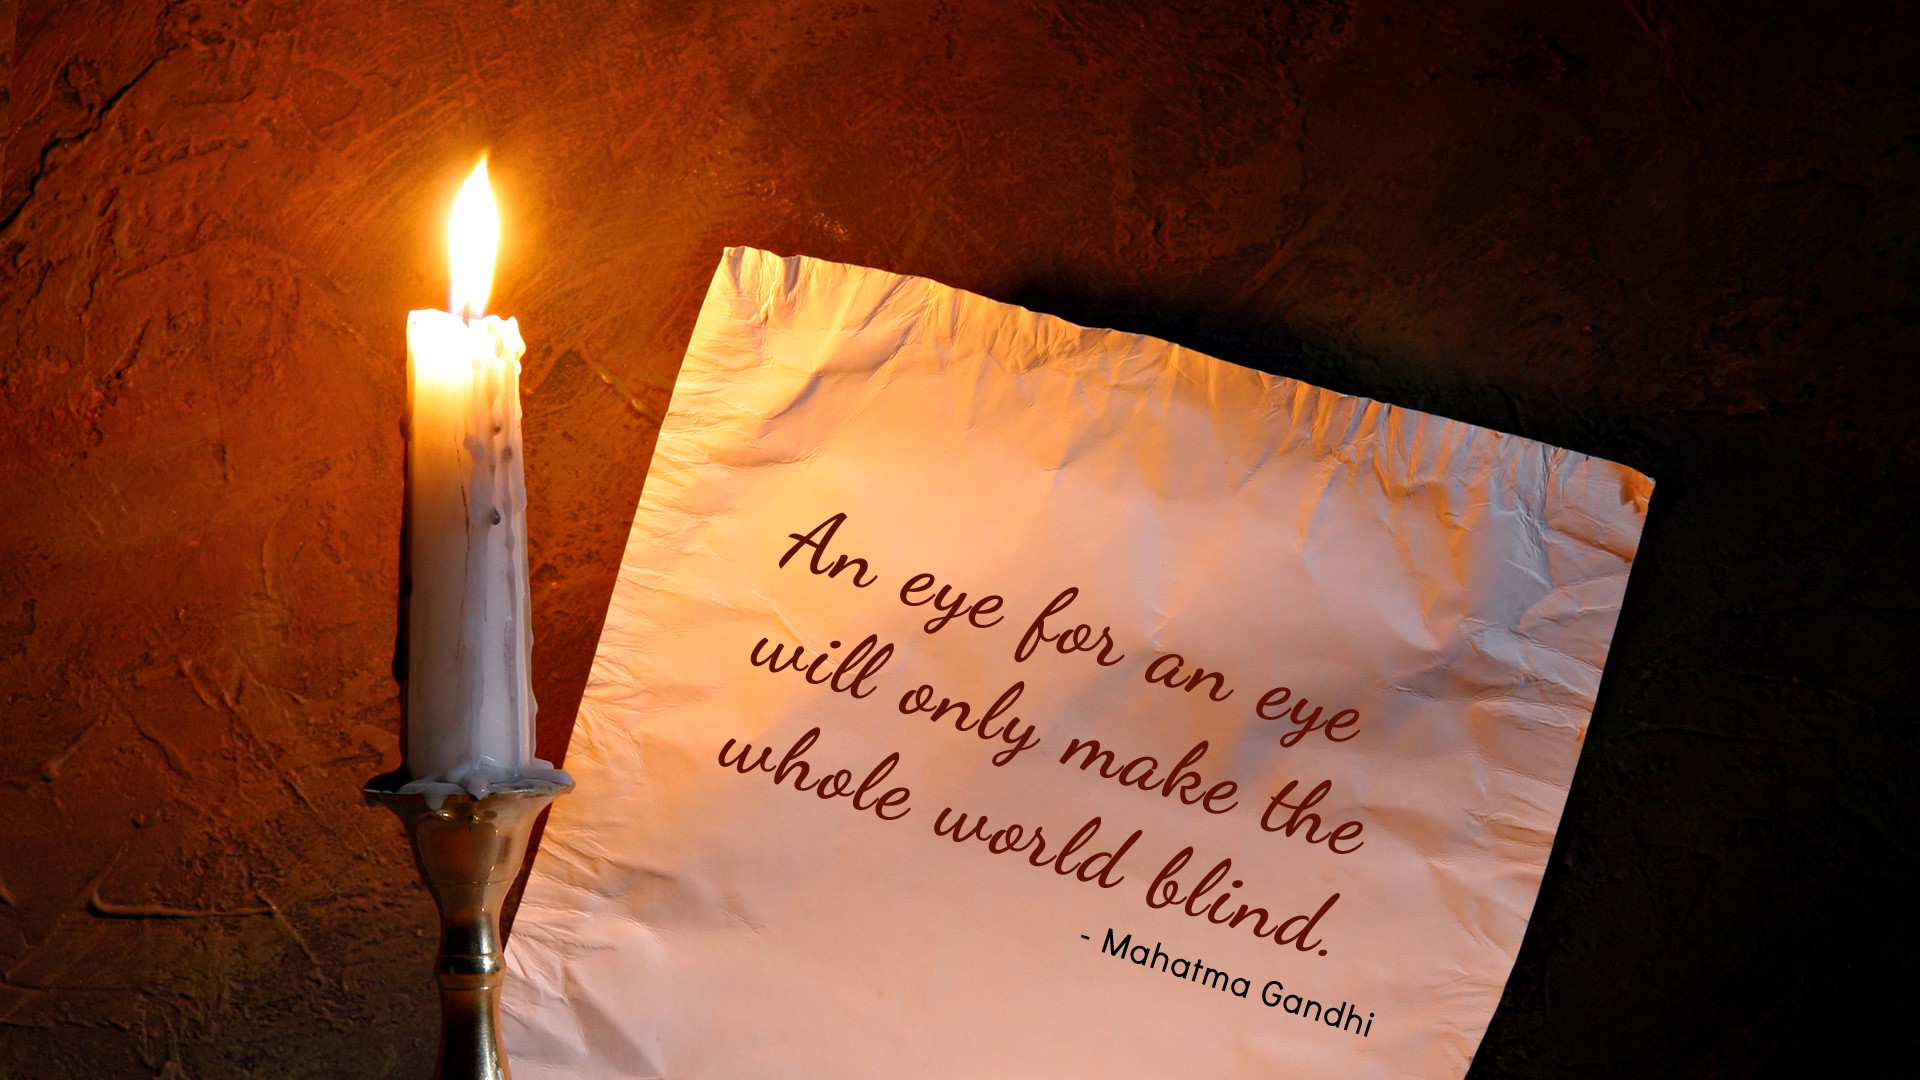 An eye for an eye
will only make the
whole world blind.
- Mahatma Gandhi